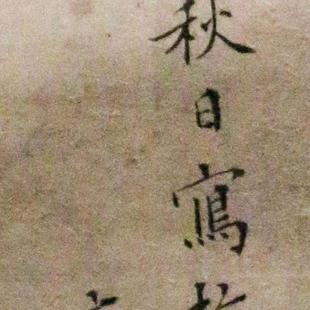 秋日寫